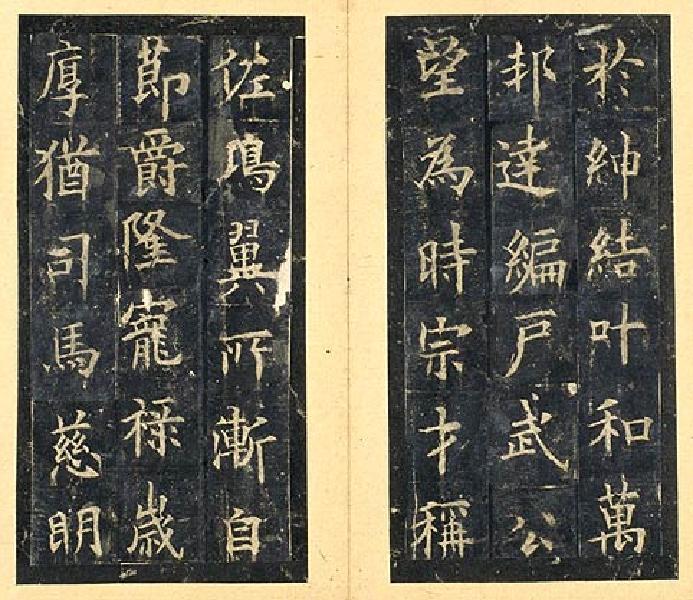 於紳結叶和萬
邦達編戶武公
望為時宗才稱
佐鴻翼所漸自
節爵隆寵祿歲
厚猶司馬慈明